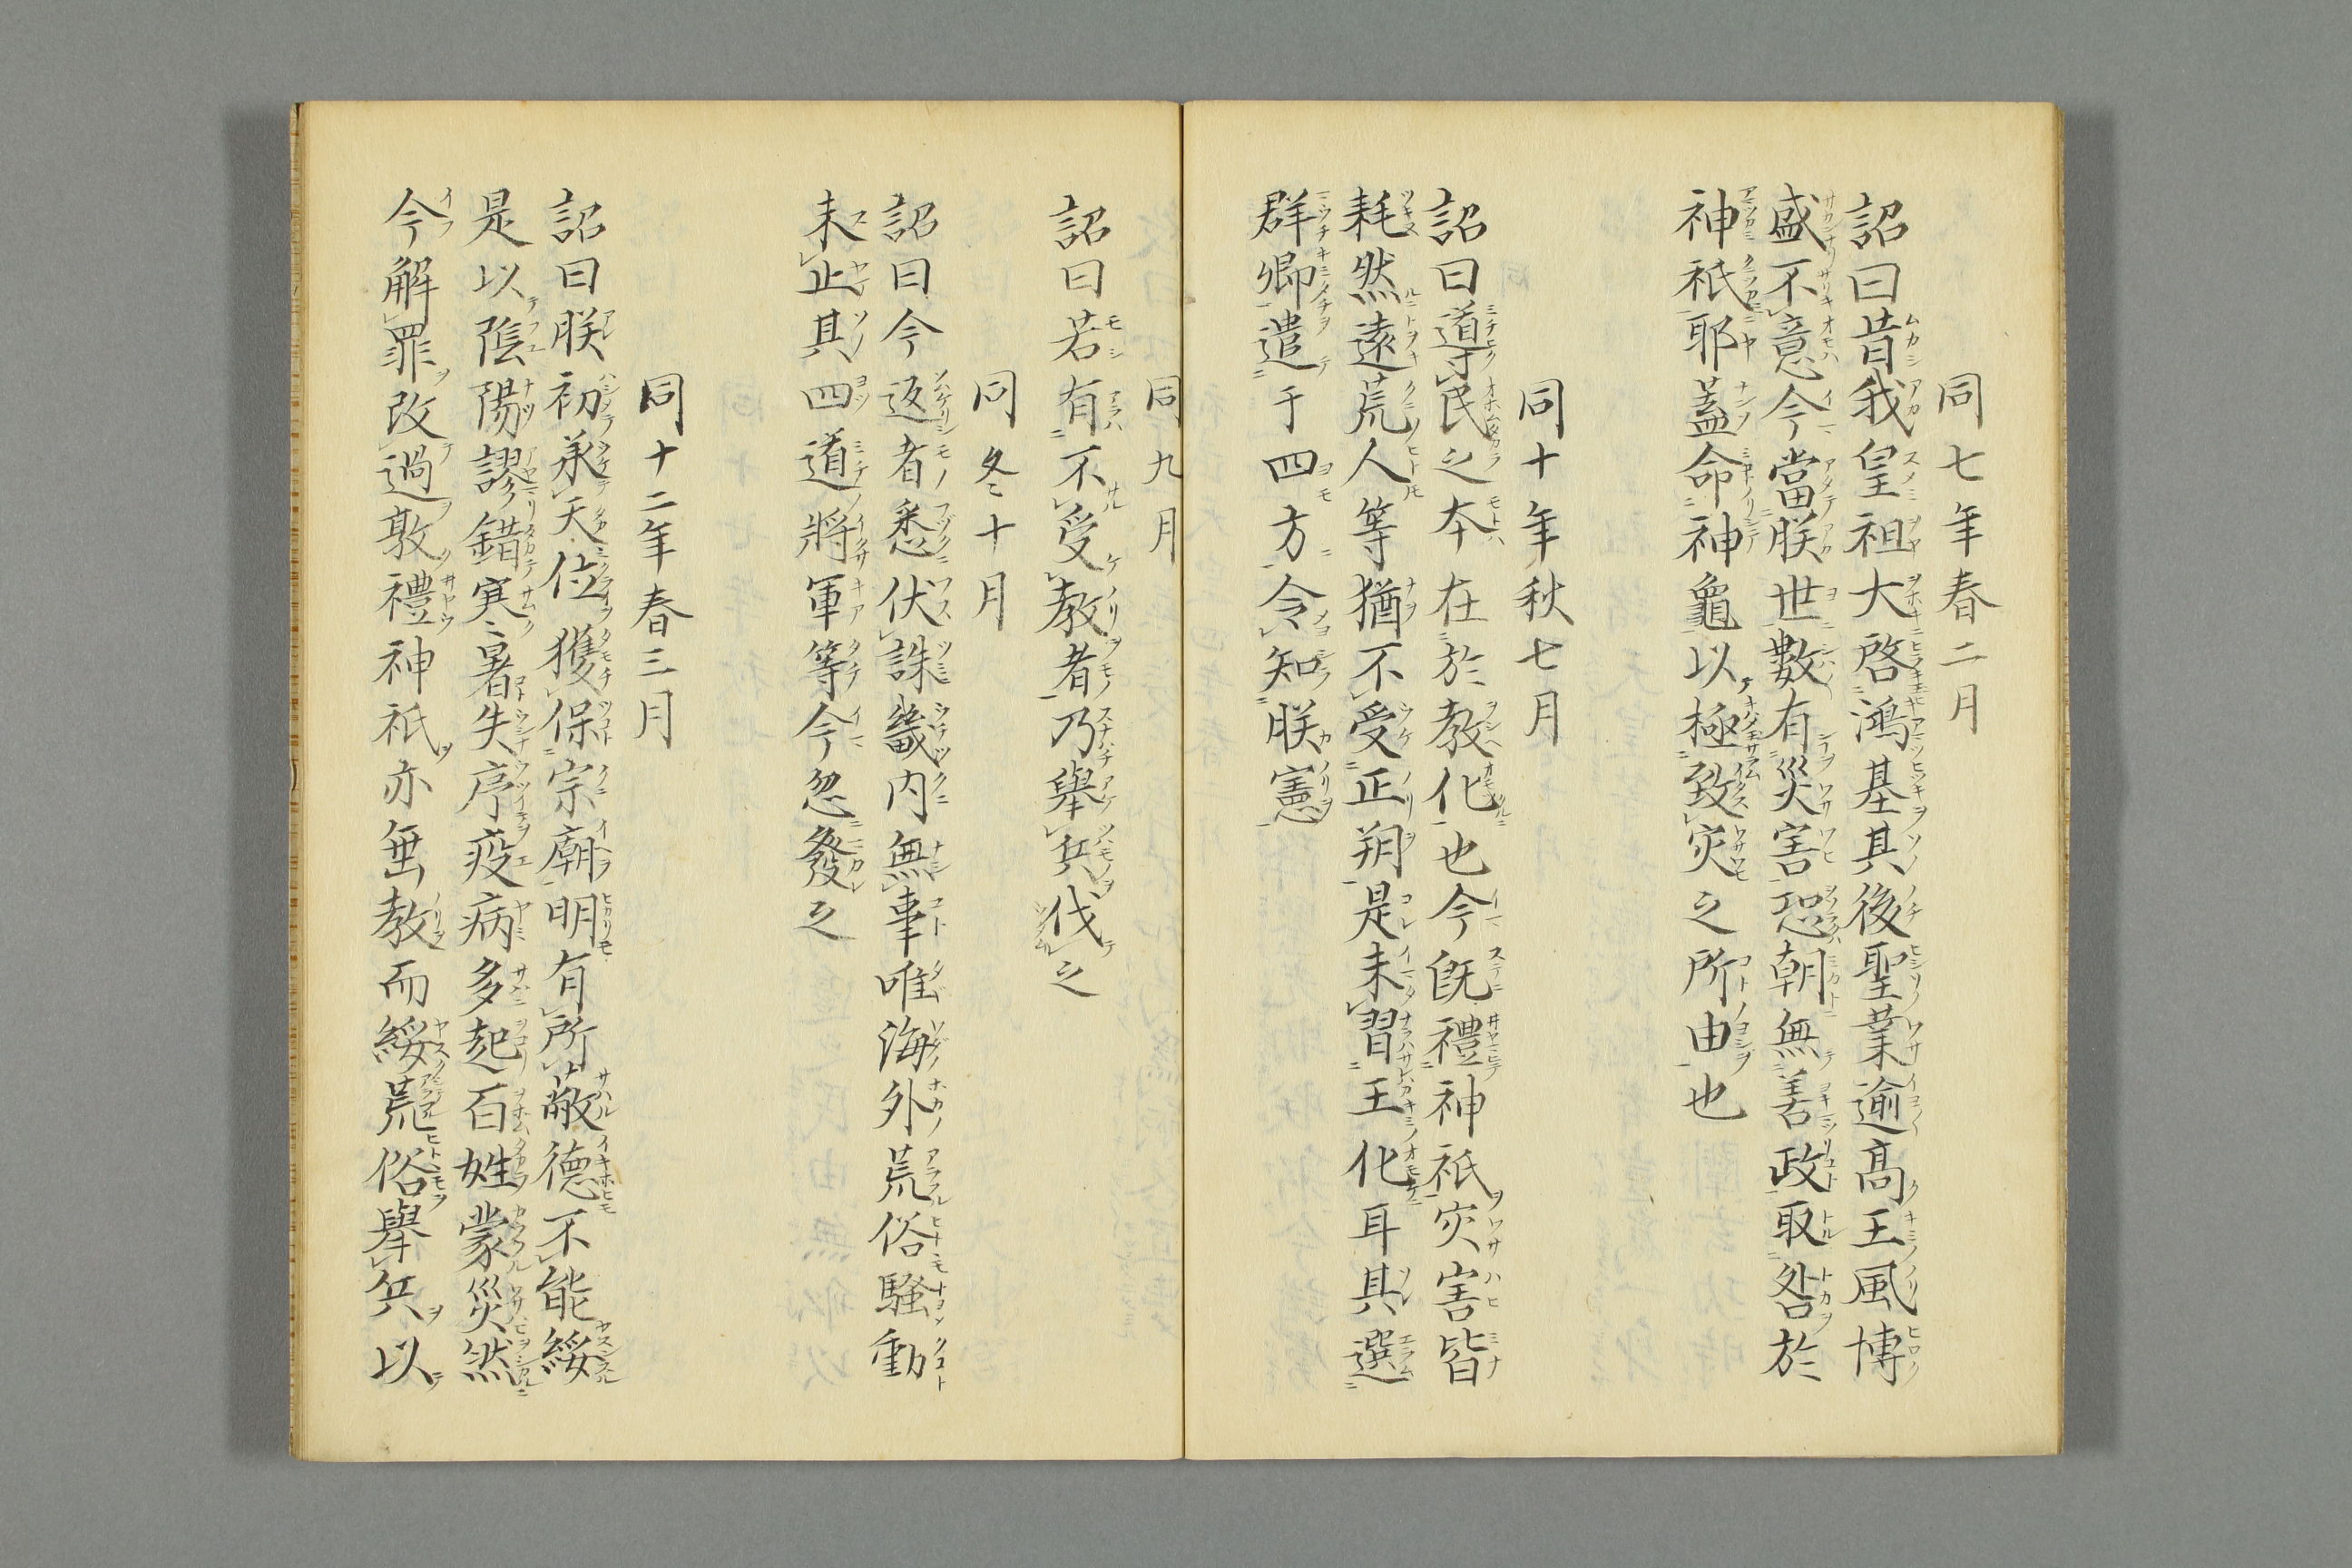 同七年春二月
詔曰昔我皇祖大啓鴻基其後聖業逾高王風博
盛不意今當朕世數有災害恐朝無善政取咎於
神祇耶蓋命神龜以極致灾之所由也
同十年秋七月
詔曰導民之本在於教化也今既禮神祇灾害皆
耗然遠荒人等猶不受正朔是未習王化耳其選
群卿遣于四方令知朕憲
同九月
詔曰若有不受教者乃舉兵伐之
同冬十月
詔曰今返者悉伏誅畿内無事唯海外荒俗騒動
未止其四道將軍等今忽發之
同十二年春三月
詔曰朕初承天位獲保宗廟明有所蔽德不能綏
是以陰陽謬錯寒暑失序疫病多起百姓蒙災然
今解罪改過敦禮神祇亦垂教而綏荒俗舉兵以